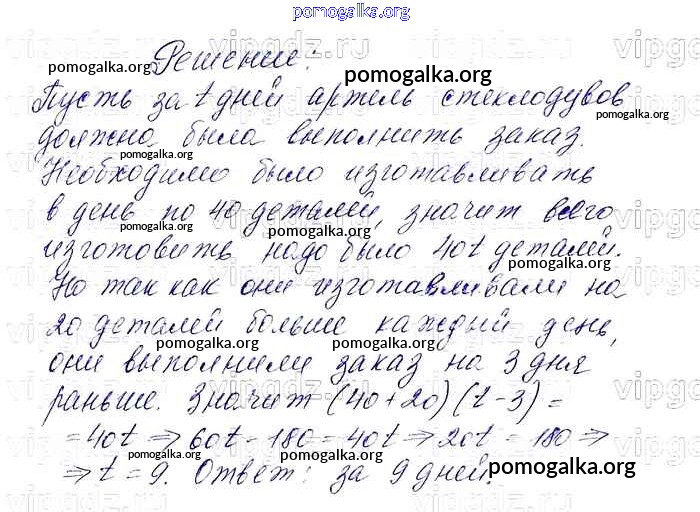 pomogalka.org
Решение:
Пусть за t дней артель стеклодувов
должна была выполнить заказ.
Необходимо было изготавливать
в день по 40 деталей, значит всего
изготовить надо было 40t деталей.
Но так как они изготавливали на
20 деталей больше каждый день,
они выполнили заказ на 3 дня
раньше. Значит (40+20)(t-3)=
=40t ⇒ 60t - 180 = 40t ⇒ 20t = 180 ⇒
⇒ t = 9. Ответ: за 9 дней.
pomogalka.org
pomogalka.org
pomogalka.org
pomogalka.org
pomogalka.org
pomogalka.org
pomogalka.org
pomogalka.org
pomogalka.org
pomogalka.org
pomogalka.org
vipgdz.ru